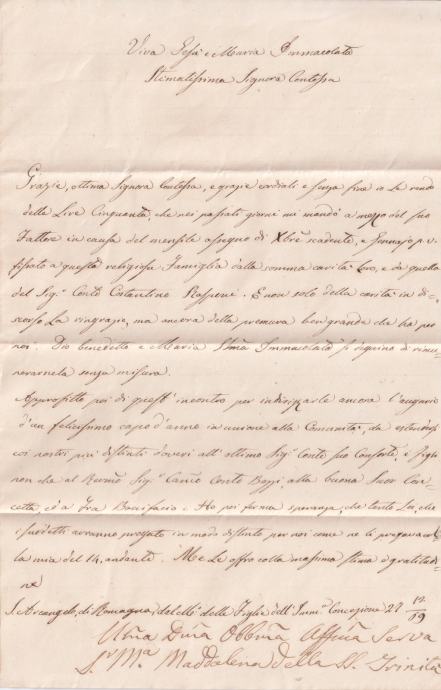 Viva Gesù e Maria Immacolata
Stimatissima Signora Contessa
Grazie, ottima Signora Contessa, e grazie cordiali e senza fine io Le rendo
delle Lire Cinquanta, che nei passati giorni mi mandò a mezzo del suo
Fattore in causa del mensile assegno di Xbre scadente, e Gennajo p. v.
fissato a questa religiosa Famiglia dalla somma carità Loro, e da quella
del Sig.r Conte Costantino . E non solo della carità in di-
scorso La ringrazio, ma ancora della premura ben grande che ha per
noi. Dio benedetto e Maria SSma Immacolata si degnino di rimu-
nerarnela senza misura.
Approfitto poi di quest'incontro per indirizzarle ancora l'augurio
d'un felicissimo capo d'anno in unione alla Comunità, da estendersi
coi nostri più distinti doveri all'ottimo Sig.r Conte suo Consorte, e Figli
non che al Revmo Sig.r Canco Conte , alla buona Suor Con-
cetta, ed a Fra Bonifacio. Ho poi ferma speranza che tanto Lei, che
i suddetti avranno pregato in modo distinto per noi come ne li pregava colla
la mia del 14. andante. Me Le offro colla massima stima e gratitudi-
ne
S. Arcangelo di Romagna, dal Mo delle Figlie dell'Immo Concezione 27
Uma Dma Obbma Affma Serva
Sr Ma Maddalena della SS. Trinità